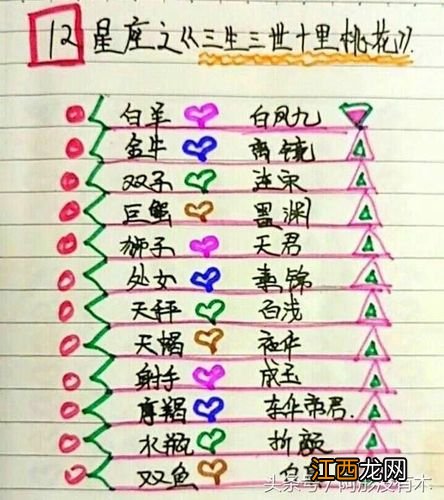 12星座之《三生三世十里桃花》
白羊 白凤九
金牛 离镜
双子 连宋
巨蟹 墨渊
狮子 天君
处女 素锦
天秤 白浅
天蝎 夜华
射手 成玉
摩羯 东华帝君.
水瓶 折颜
双鱼 白
江西龙网